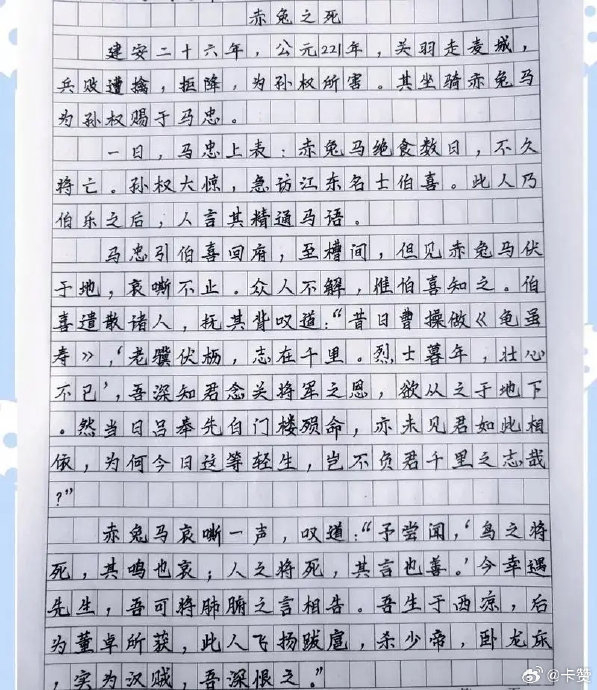 赤兔之死
建安二十六年，公元221年，关羽走麦城，
兵败遭擒，拒降，为孙权所害。其坐骑赤兔马
为孙权赐于马忠。
一日，马忠上表：赤兔马绝食数日，不久
将亡。孙权大惊，急访江东名士伯喜。此人乃
伯乐之后，人言其精通马语。
马忠引伯喜回府，至槽间，但见赤兔马伏
于地，哀嘶不止。众人不解，惟伯喜知之。伯
喜遣散诸人，抚其背叹道：“昔日曹操做《龟虽
寿》，‘老骥伏枥，志在千里。烈士暮年，壮心
不已’，吾深知君念关将军之恩，欲从之于地下
。然当日吕奉先白门楼殒命，亦未见君如此相
依，为何今日这等轻生，岂不负君千里之志哉
？”
赤兔马哀嘶一声，叹道：“予尝闻，‘鸟之将
死，其鸣也哀；人之将死，其言也善。’今幸遇
先生，吾可将肺腑之言相告。吾生于西凉，后
为董卓所获，此人飞扬跋扈，杀少帝，卧龙床
，实为汉贼，吾深恨之。”
@卡赞